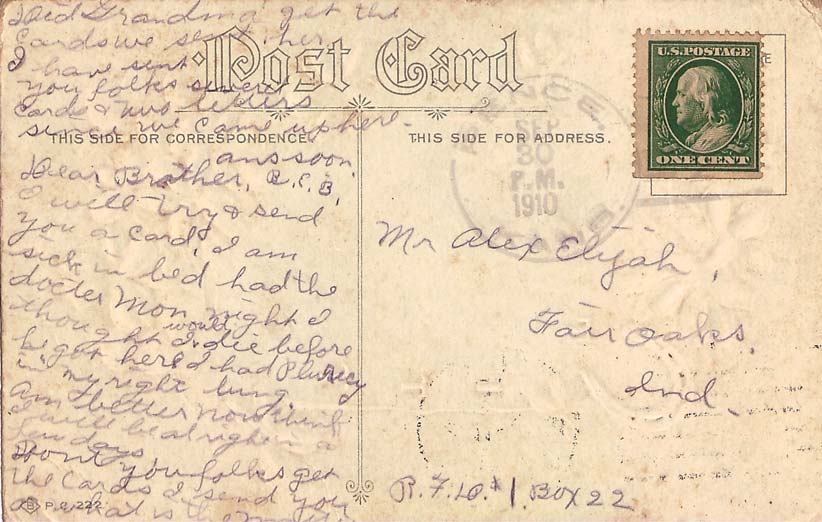 Did Grandma get the
Cards we sent her
I have sent
you folks seven
Cards & two letters
since we came up here.
ans soon
Post Card
THIS SIDE FOR CORRESPONDENCE.
THIS SIDE FOR ADDRESS.
Dear Brother, B.C.B,
I will try & send
you a card, I am
sick in bed had the
docter Mon night I
thought I would die before
he got here I had Plurecy
in my right lung
am better now think
I will be alright in a
few days
Dont you folks get
the Cards I send you
or what is the
U.S. POSTAGE
ONE CENT
SEP
30
P.M.
1910
Mr Alex Elijah,
Fair Oaks,
Ind
R.F.D. #1, Box 22
P.C. 222